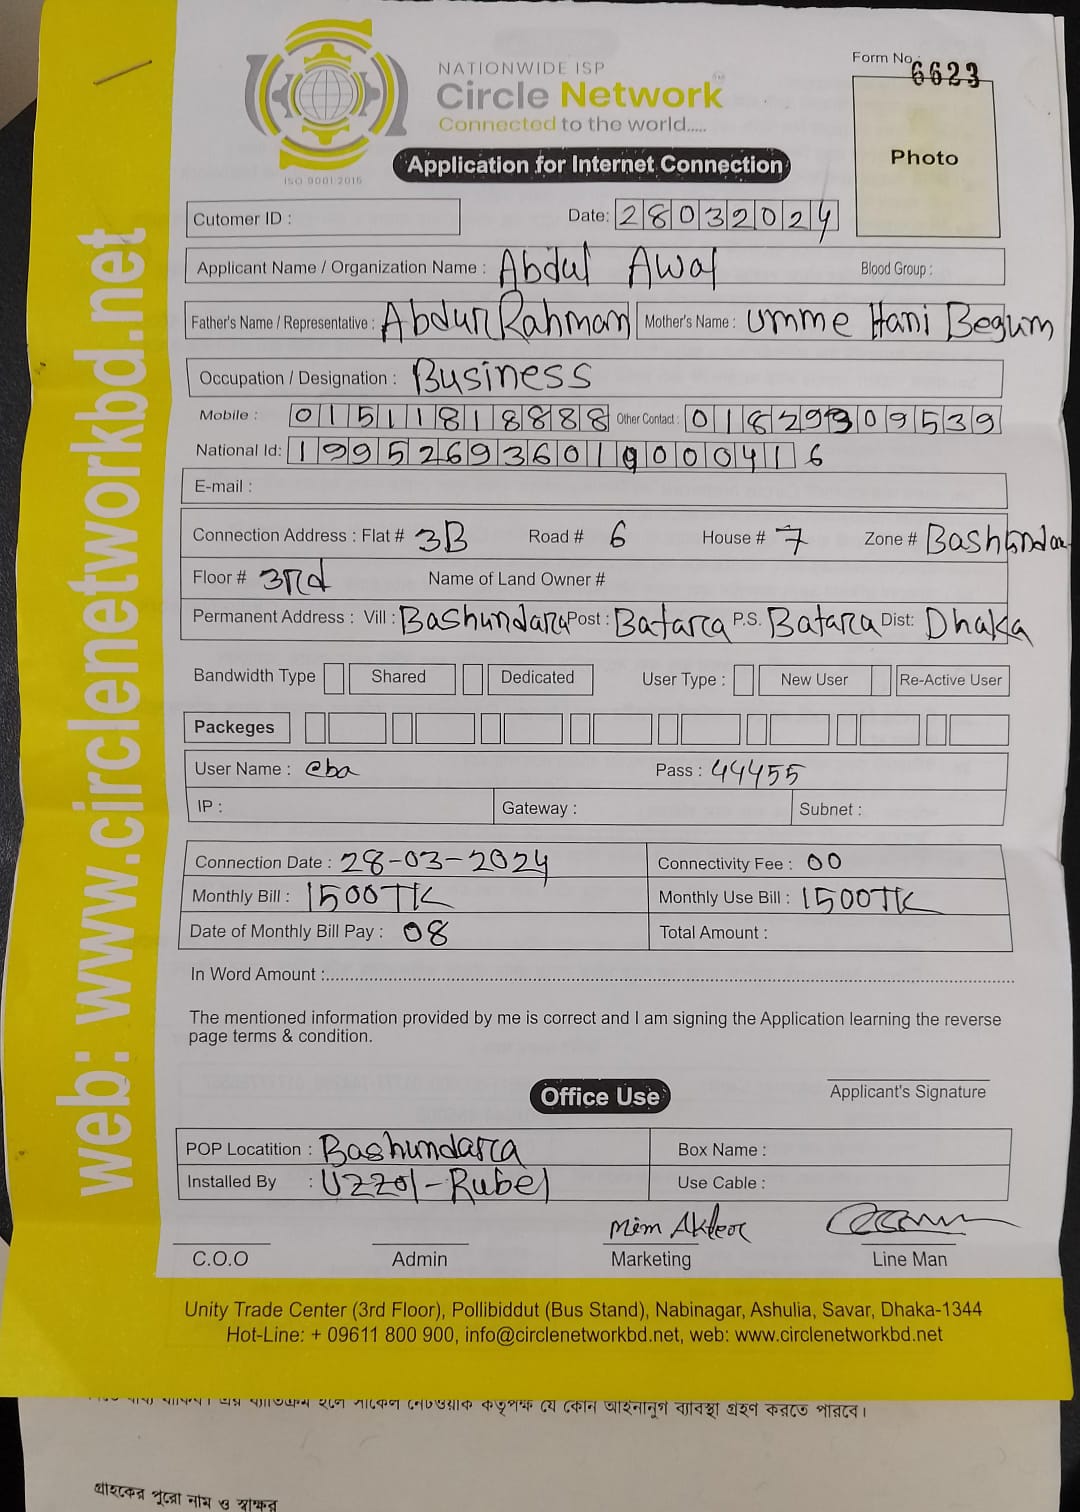 NATIONWIDE ISP
Circle Network™
Connected to the world.....
ISO 9001:2015
Form No. 6623
Photo
Application for Internet Connection
Cutomer ID :
Date: 28032024
Applicant Name / Organization Name : Abdul Awal
Blood Group :
Father's Name / Representative : Abdur Rahman Mother's Name : Umme Hani Begum
Occupation / Designation : Business
Mobile : 01511818888 Other Contact : 01829309539
National Id: 19952693601900416
E-mail :
Connection Address : Flat # 3B Road # 6 House # 7 Zone # Bashundar
Floor # 3rd Name of Land Owner #
Permanent Address : Vill : Bashundara Post : Batara P.S. Batara Dist: Dhaka
Bandwidth Type Shared Dedicated User Type : New User Re-Active User
Packeges
User Name : eba Pass : 44455
IP : Gateway : Subnet :
Connection Date : 28-03-2024 Connectivity Fee : 00
Monthly Bill : 1500TK Monthly Use Bill : 1500TK
Date of Monthly Bill Pay : 08 Total Amount :
In Word Amount :
The mentioned information provided by me is correct and I am signing the Application learning the reverse
page terms & condition.
Applicant's Signature
Office Use
POP Locatition : Bashundara Box Name :
Installed By : Uzzol-Rubel Use Cable :
Mim Akter
C.O.O Admin Marketing Line Man
Unity Trade Center (3rd Floor), Pollibiddut (Bus Stand), Nabinagar, Ashulia, Savar, Dhaka-1344
Hot-Line: + 09611 800 900, info@circlenetworkbd.net, web: www.circlenetworkbd.net
web: www.circlenetworkbd.net
সার্কেল নেটওয়ার্ক কর্তৃপক্ষ যে কোন আইনানুগ ব্যবস্থা গ্রহণ করতে পারবে।
গ্রাহকের পুরো নাম ও স্বাক্ষর